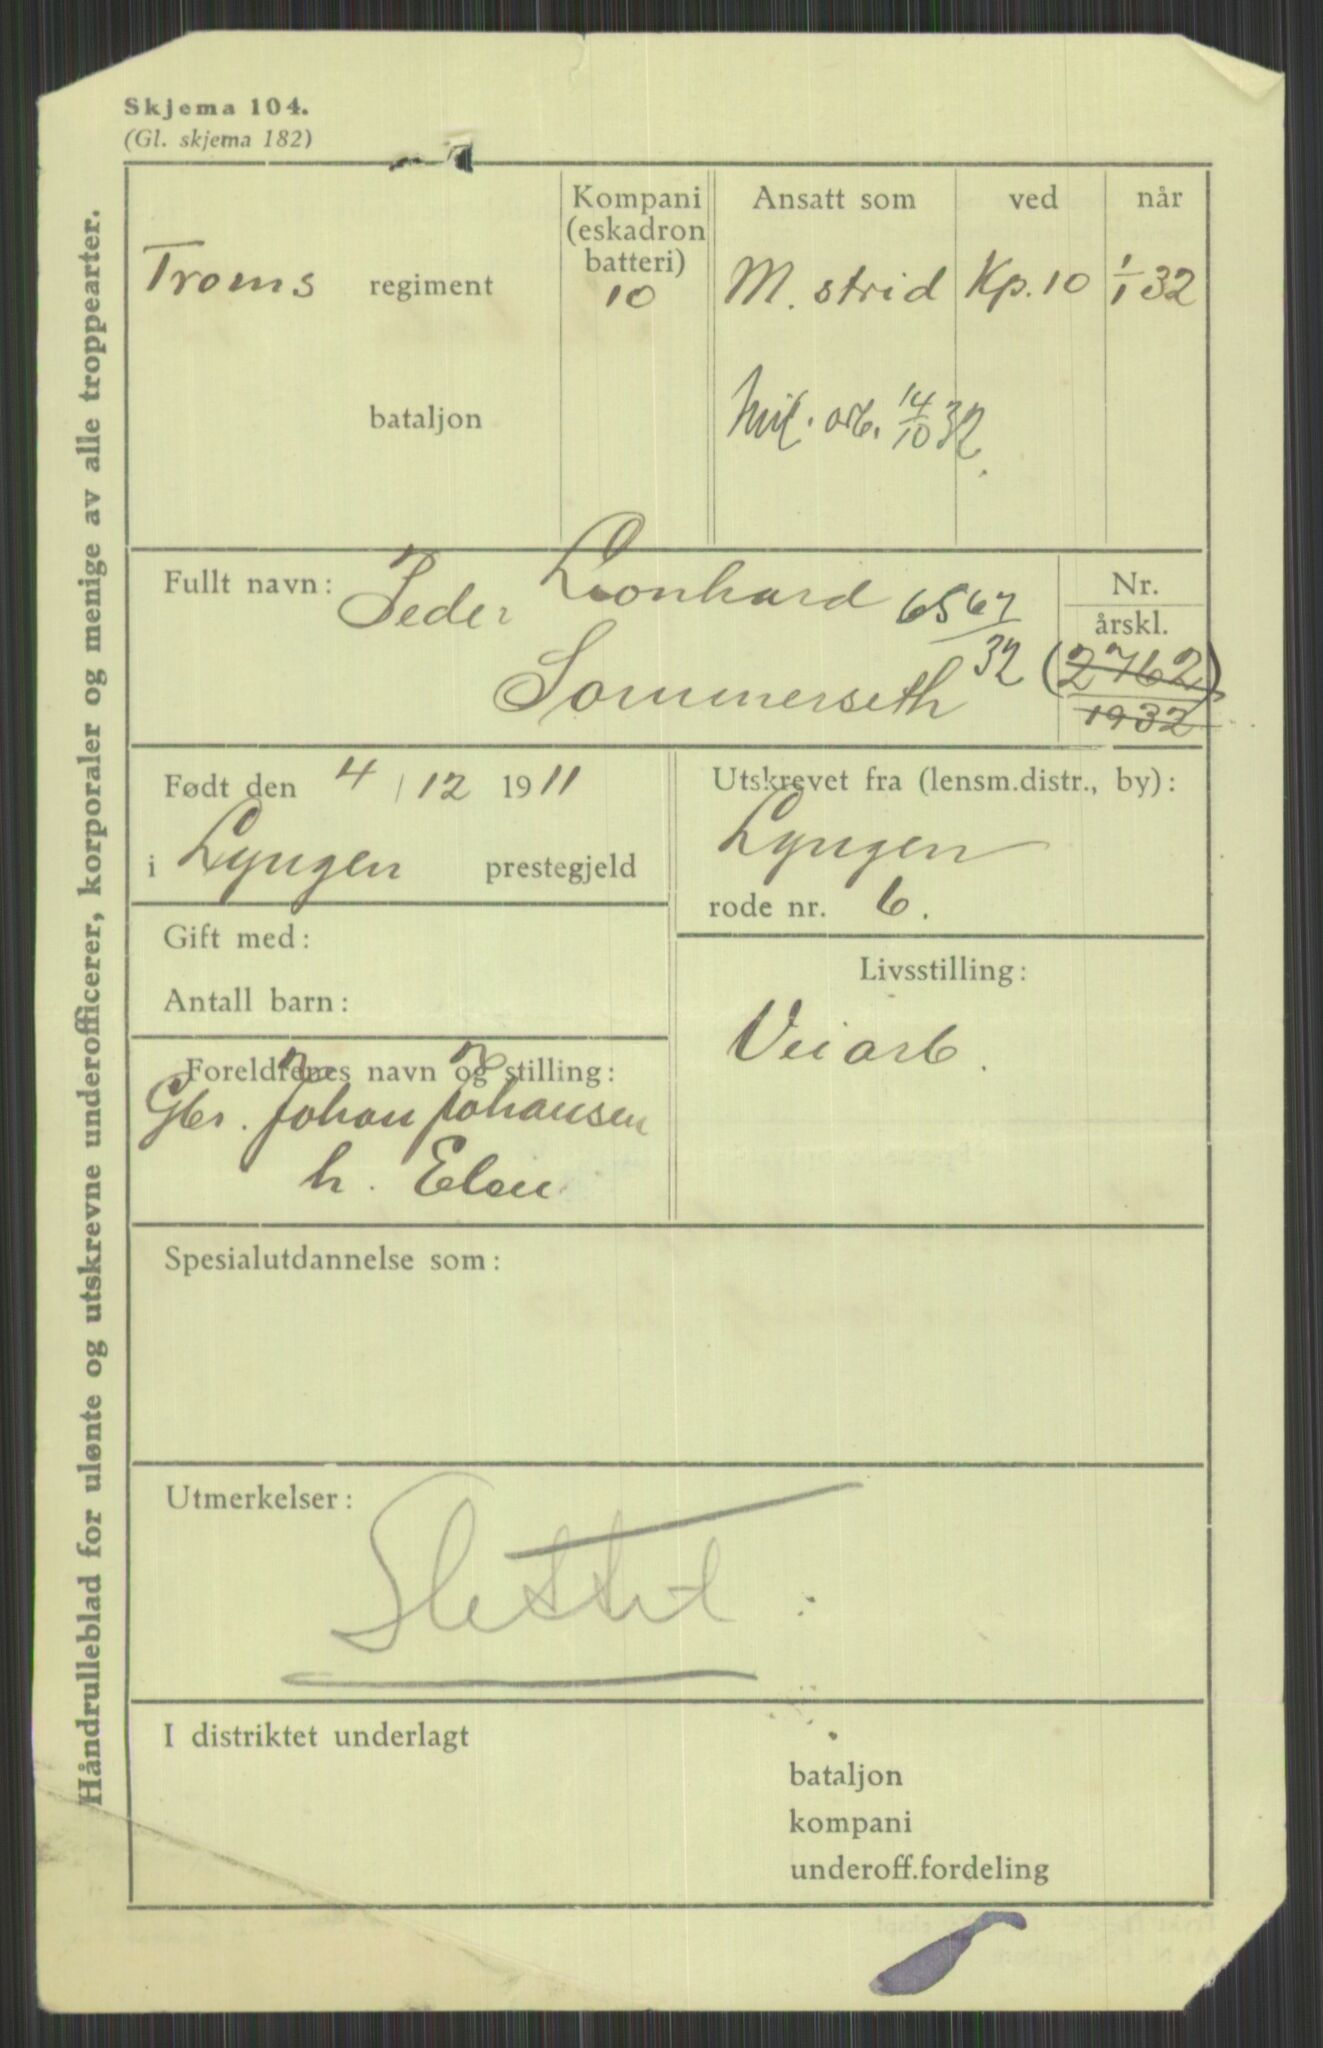 Skjema 104.
(Gl. skjema 182)
Håndrulleblad for ulønte og utskrevne underofficerer, korporaler og menige av alle troppearter.
Kompani (eskadron batteri)
Ansatt som
ved
når
Troms regiment
10
M. strid
Kp. 10
1/1 32
bataljon
Mil. arb. 14/10 32.
Fullt navn: Peder Leonhard
Sommerseth
6567/32
Nr.
årskl.
(2762)
1932
Født den 4 / 12 1911
i Lyngen prestegjeld
Utskrevet fra (lensm.distr., by):
Lyngen
rode nr. 6.
Gift med:
Antall barn:
Livsstilling:
Veiarb.
Foreldrenes navn og stilling:
Gbr. Johan Johansen
h. Elen
Spesialutdannelse som:
Utmerkelser:
Slettet
I distriktet underlagt
bataljon
kompani
underoff.fordeling